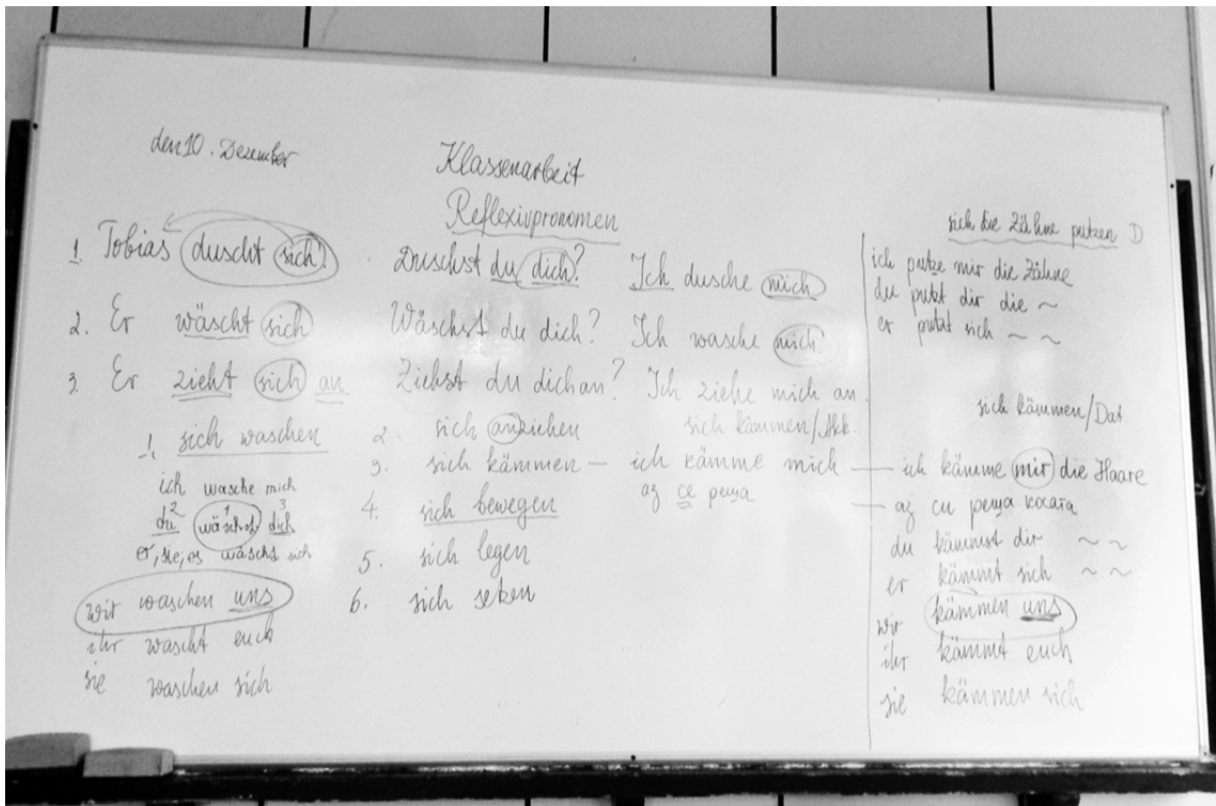 den 10. Dezember
Klassenarbeit
Reflexivpronomen
1. Tobias duscht sich! Duschst du dich? Ich dusche mich
2. Er wäscht sich Wäschst du dich? Ich wasche mich
3. Er zieht sich an Ziehst du dich an? Ich ziehe mich an.
1. sich waschen
ich wasche mich
du² wäschst¹ dich³
er, sie, es wäscht sich
wir waschen uns
ihr wascht euch
sie waschen sich
2. sich anziehen
sich kämmen/Akk.
3. sich kämmen — ich kämme mich — ich kämme mir die Haare
аз се реша — аз си реша косата
4. sich bewegen
5. sich legen
6. sich setzen
sich die Zähne putzen D
ich putze mir die Zähne
du putzt dir die ~
er putzt sich ~ ~
sich kämmen/Dat.
du kämmst dir ~ ~
er kämmt sich ~ ~
wir kämmen uns
ihr kämmt euch
sie kämmen sich